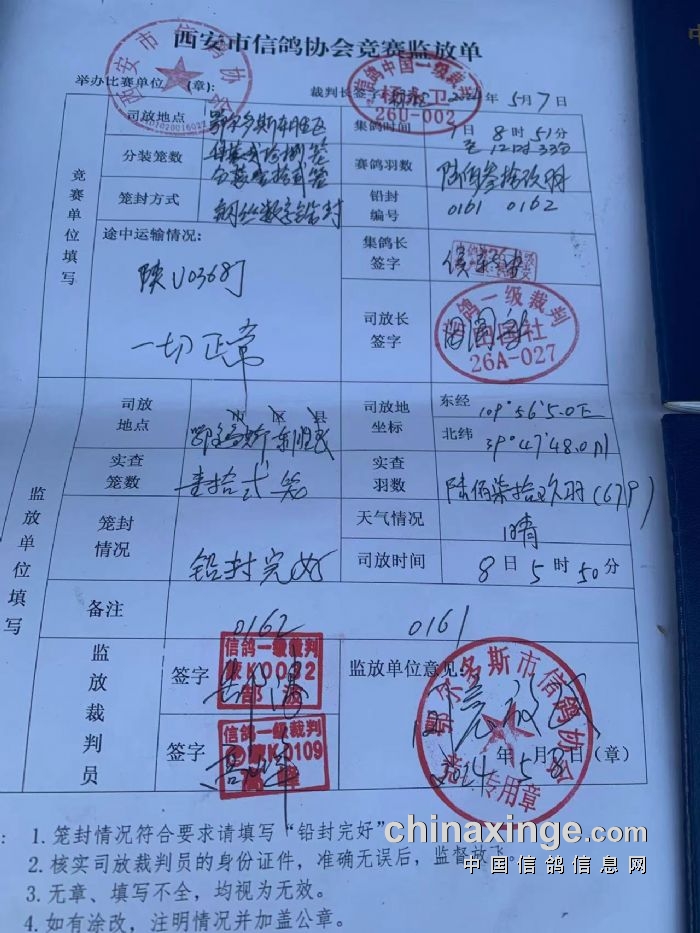 西安市信鸽协会竞赛监放单
举办比赛单位 (章): 裁判长签字 2024年5月7日
信鸽中国一级裁判
26U-002
竞赛单位填写
司放地点 鄂尔多斯东胜区 集鸽时间 7日8时51分
至12时33分
分装笼数 赛鸽羽数
笼封方式 钢丝数字铅封 铅封编号 0161 0162
途中运输情况: 集鸽长签字
陕U03687
一切正常
司放长签字
信鸽一级裁判
26A-027
监放单位填写
司放地点 市区县 鄂尔多斯东胜区 司放地坐标 东经 109°56'5.0E
北纬 39°47'48.0N
实查笼数 壹拾弍笼 实查羽数 陆佰柒拾玖羽(679)
笼封情况 铅封完好 天气情况 晴
司放时间 8日5时50分
备注 0162 0161
监放裁判员
签字 监放单位意见:
信鸽一级裁判
K0032
签字
信鸽一级裁判
K0109
同意放飞
2024年5月8日(章)
鄂尔多斯市信鸽协会
专用章
1. 笼封情况符合要求请填写“铅封完好”
2. 核实司放裁判员的身份证件，准确无误后，监督放飞。
3. 无章、填写不全，均视为无效。
4. 如有涂改，注明情况并加盖公章。
chinaxinge.com
中国信鸽信息网